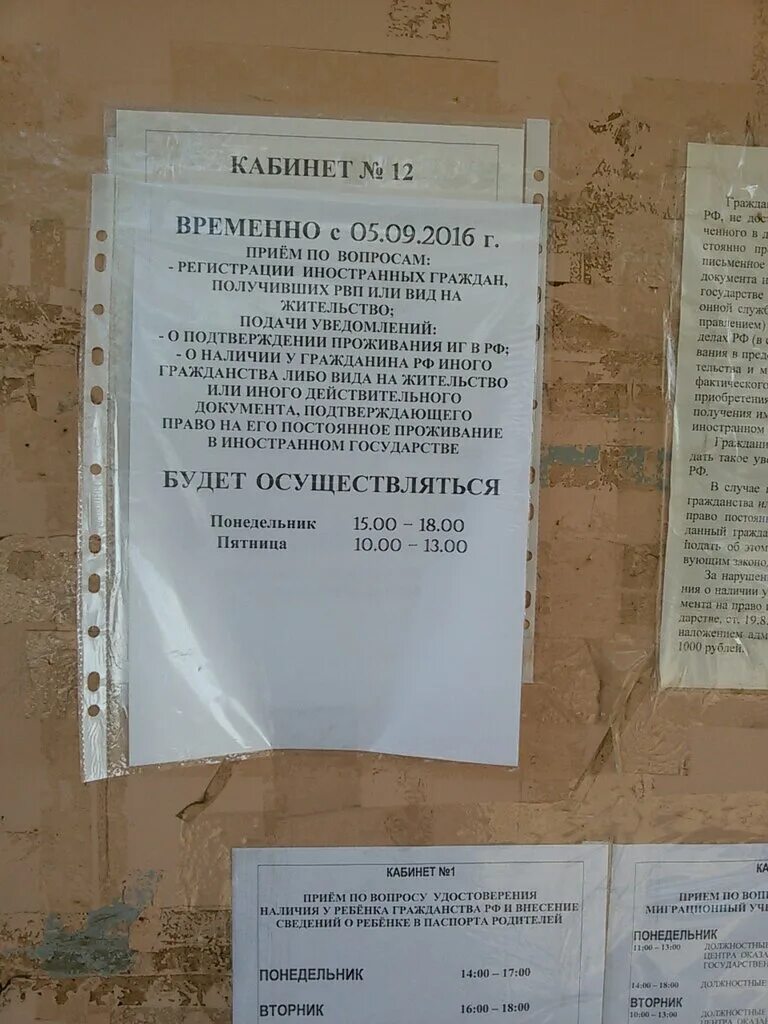 КАБИНЕТ № 12
ВРЕМЕННО с 05.09.2016 г.
ПРИЁМ ПО ВОПРОСАМ:
- РЕГИСТРАЦИИ ИНОСТРАННЫХ ГРАЖДАН,
ПОЛУЧИВШИХ РВП ИЛИ ВИД НА
ЖИТЕЛЬСТВО;
ПОДАЧИ УВЕДОМЛЕНИЙ:
- О ПОДТВЕРЖДЕНИИ ПРОЖИВАНИЯ ИГ В РФ;
- О НАЛИЧИИ У ГРАЖДАНИНА РФ ИНОГО
ГРАЖДАНСТВА ЛИБО ВИДА НА ЖИТЕЛЬСТВО
ИЛИ ИНОГО ДЕЙСТВИТЕЛЬНОГО
ДОКУМЕНТА, ПОДТВЕРЖДАЮЩЕГО
ПРАВО НА ЕГО ПОСТОЯННОЕ ПРОЖИВАНИЕ
В ИНОСТРАННОМ ГОСУДАРСТВЕ
БУДЕТ ОСУЩЕСТВЛЯТЬСЯ
Понедельник 15.00 – 18.00
Пятница 10.00 – 13.00
РФ, не
ченного в
стоянно
письменное
документа
государстве
онной
правлением)
делах РФ (в
вания в
тельства и
фактического
приобретения
получения
иностранном
дать такое
РФ.
В случае
гражданства
право
данный
подать об этом
вующим
За
ния о наличии у
мента на право
дарстве, ст. 19.8.
наложением
1000 рублей.
КАБИНЕТ №1
ПРИЁМ ПО ВОПРОСУ УДОСТОВЕРЕНИЯ
НАЛИЧИЯ У РЕБЁНКА ГРАЖДАНСТВА РФ И ВНЕСЕНИЕ
СВЕДЕНИЙ О РЕБЁНКЕ В ПАСПОРТА РОДИТЕЛЕЙ
ПОНЕДЕЛЬНИК 14:00 – 17:00
ВТОРНИК 16:00 – 18:00
КА
ПРИЕМ ПО
МИГРАЦИОННЫЙ
ПОНЕДЕЛЬНИК
11:00 – 13:00 ДОЛЖНОСТНЫЕ
ЦЕНТРА
14:00 – 18:00 ДОЛЖНОСТНЫЕ
ВТОРНИК
10:00 – 13:00 ДОЛЖНОСТНЫЕ